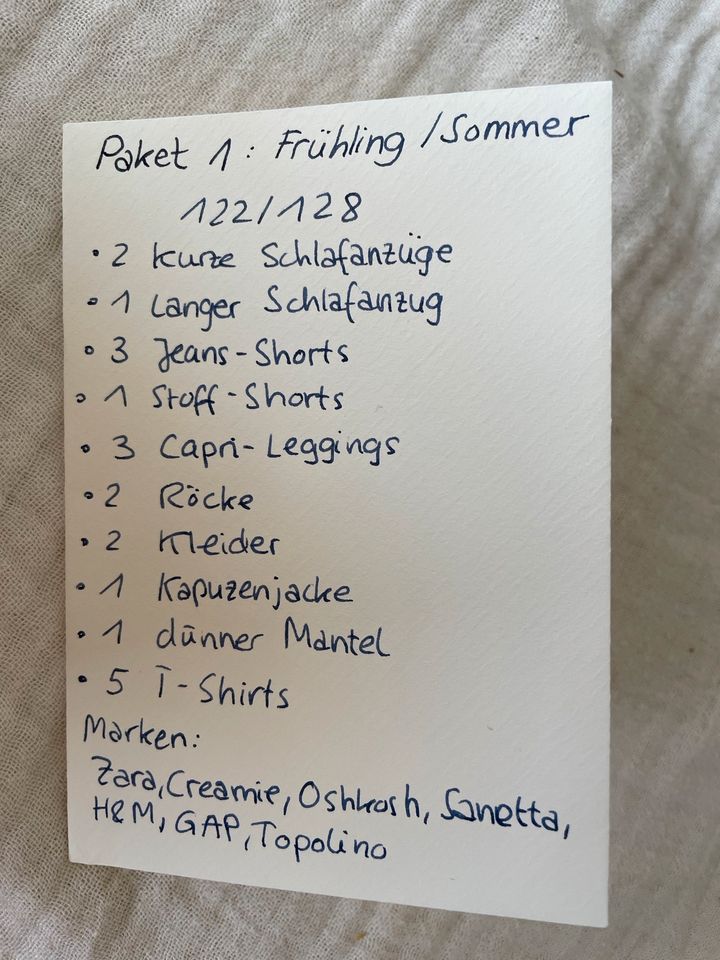 Paket 1: Frühling / Sommer
122/128
• 2 kurze Schlafanzüge
• 1 Langer Schlafanzug
• 3 Jeans-Shorts
• 1 Stoff-Shorts
• 3 Capri-Leggings
• 2 Röcke
• 2 Kleider
• 1 Kapuzenjacke
• 1 dünner Mantel
• 5 T-Shirts
Marken:
Zara, Creamie, Oshkosh, Sanetta,
H&M, GAP, Topolino